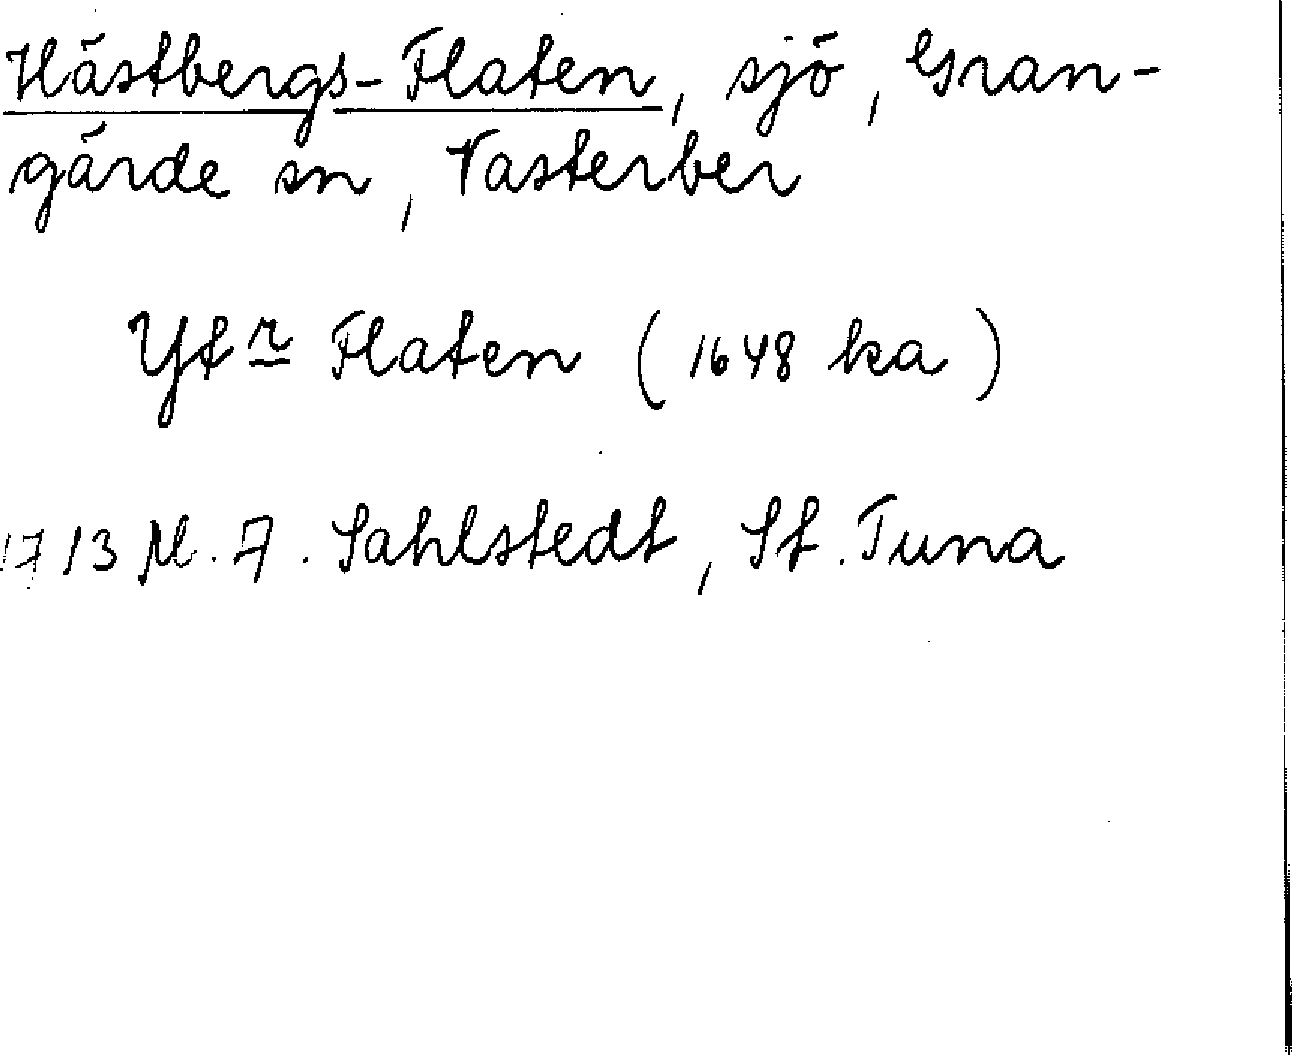 Hästbergs-Flaten, sjö, Gran-
gärde sn, Vasterber
Ytr Flaten (1648 ka)
1713 M. A. Sahlstedt, St. Tuna